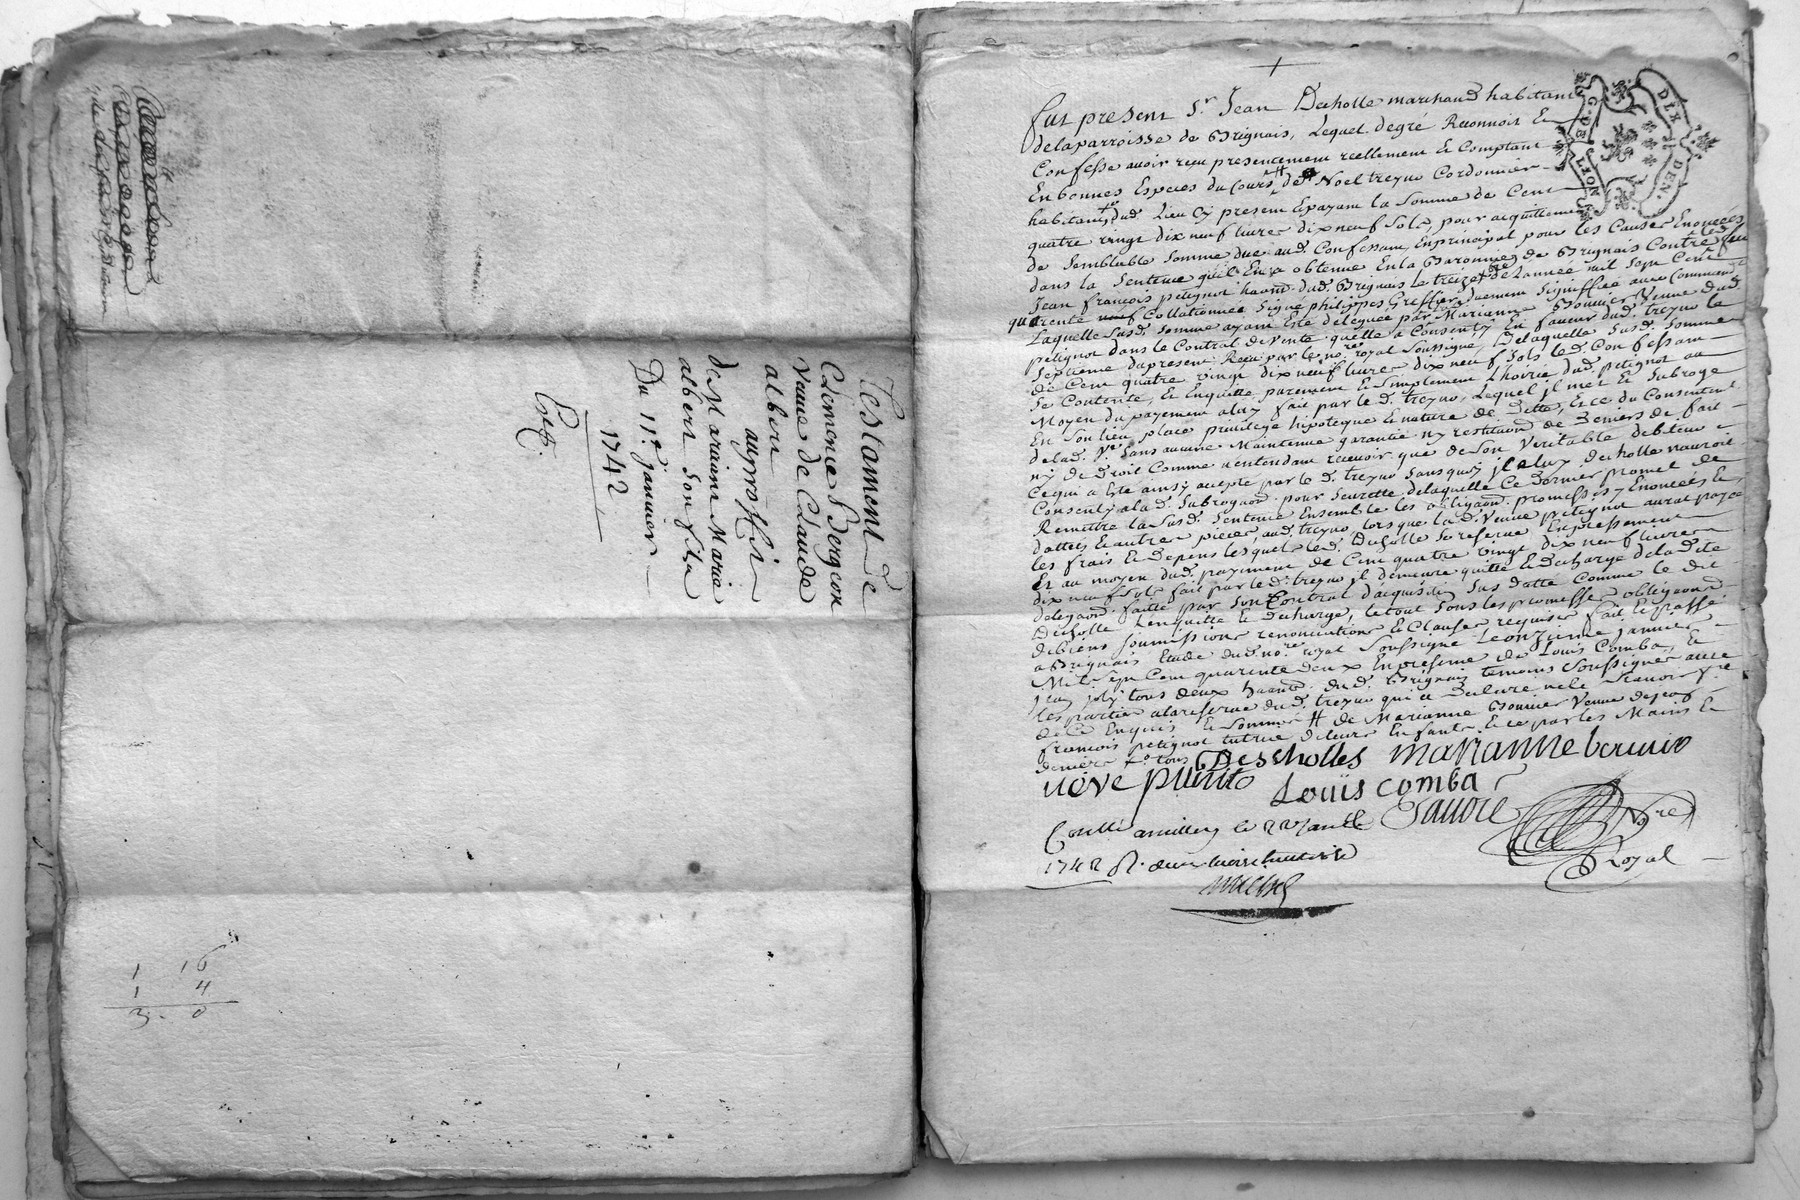 Testament de
Clemence Bergeon
veuve de Claude
albert
au proffit
de Marianne Marie
albert son fils
Du 11e janvier
1742
1 16
1 4
3. 0
G. DE LYON
DIX DEN.
fut present Sr Jean Descholle marchand habitant
de la parroisse de Brignais, Lequel de gré Reconnoit Et
Confesse avoir reçu presentement reellement Et Comptant
En bonnes Especes du Cours de Noel treyno Cordonnier
habitant dud. Lieu Cy present Et payant la Somme de Cent
quatre vingt dix neuf livres dix neuf Sols, pour acquittement
de Semblable Somme due aud. Confessant En principal pour les Causes Enoncées
dans la Sentence quil En a obtenue En la Baronnie de Brignais Contre feu
Jean françois petignot hant. dud. Brignais le treize de Lannée mil Sept Cent
quarente Collationnée Signé philippes Greffier duement Signiffiée avec Commandt
Laquelle Susd. Somme ayant Esté deleguée par Marianne Bonnier Veuve dud.
petignot dans le Contrat de Vente quelle a Consenty En faveur dud. treyno le
Septieme du present Recu par le nore royal Soussigné, De laquelle Susd. Somme
de Cent quatre vingt dix neuf livres dix neuf Sols led. Confessant
Se Contente, Et Enquitte purement Et Simplement Lhoirie dud. petignot au
Moyen du payement a luy fait par led. treyno, Lequel jl met Et Subroge
En Son lieu, place privilege hipoteque Et nature de Dette, Et ce du Consentemt
de lad. Ve. Sans aucune Maintenue garantie ny restituon de Deniers de fait
ny de Droit Comme nentendant recevoir que de Son Veritable debiteur
Ce qui a Esté ainsy accepté par le d. treyno Sans quoy jl a luy descholle nauroit
Consenty a la d. Subrogaon. pour Seurette de laquelle Ce dernier promet de
Remettre la Susd. Sentence Ensemble les obligaons. promesses y Enoncées Et
dattes Et autres pieces, aud. treyno, lorsque la d. Veuve petignot aura payé
les frais Et depens lesquels led. Descholle Se reserve Expressement
Et au moyen dud. payement de Cent quatre vingt dix neuf livres
dix neuf Sols fait par le d. treyno jl demeure quitte Et Decharge de la d ete
delegaon. faitte par Son Contrat dacquisition Sus datté Comme le dit
Descholle Lenquitte Et decharge, le tout Sous les promesses obligaons
de biens soumissions renonciations Et Clauses requises fait Et passé
a Brignais Etude dud. nore. royal Soussigné Le onzieme janvier
Mil Sept Cent quarente deux En presence de Louis Comba, Et
jean joly tous deux hants. dud. Brignais temoins Soussignés avec
les parties a la reserve dud. treyno qui a Declaré ne le Scavoir fre
de Ce Enquis Et Sommé # de Marianne Bonnier Veuve de jean
francois petignot tutrice de leurs Enfants Et ce par les Mains Et
deniers
Desscholles marianne bounio
veve putinio Louis comba
Favore Nre
Royal
Conllé a millery le 22 janv
1742 R. douze